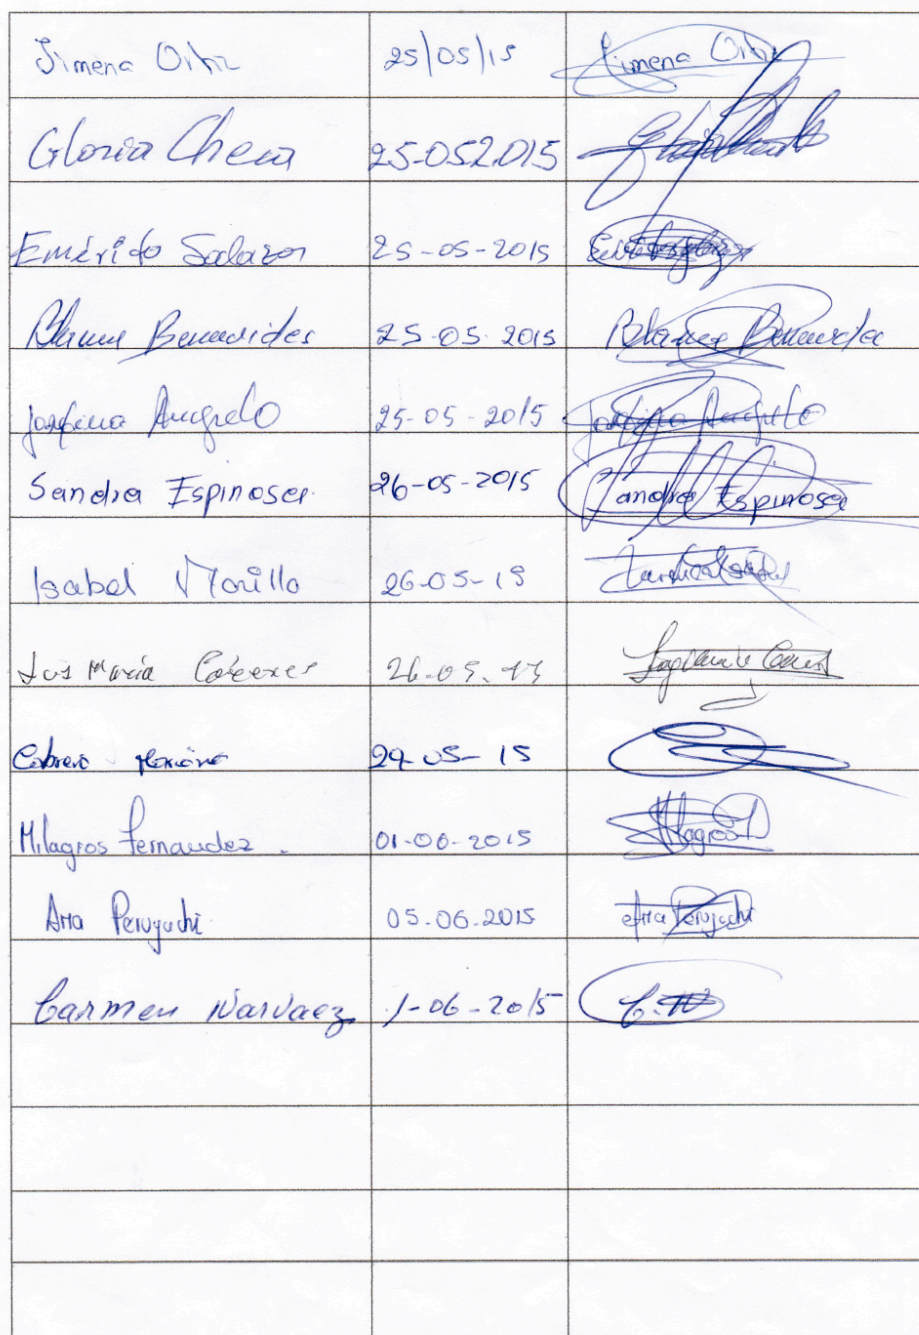 Jimena Ortiz 25/05/15 Jimena Ortiz
Gloria Checa 25-052015
Emérido Salazar 25-05-2015
Blanca Benavides 25-05-2015 Blanca Benavides
Josefina Angulo 25-05-2015 Josefina Angulo
Sandra Espinosa 26-05-2015 Sandra Espinosa
Isabel Morillo 26-05-15
Luz María Cáceres 26-05-15
Cabrera 29-05-15
Milagros Fernandez. 01-06-2015 Milagros
Ana Perugachi 05.06.2015 Ana Perugachi
Carmen Narvaez 1-06-2015 C.N